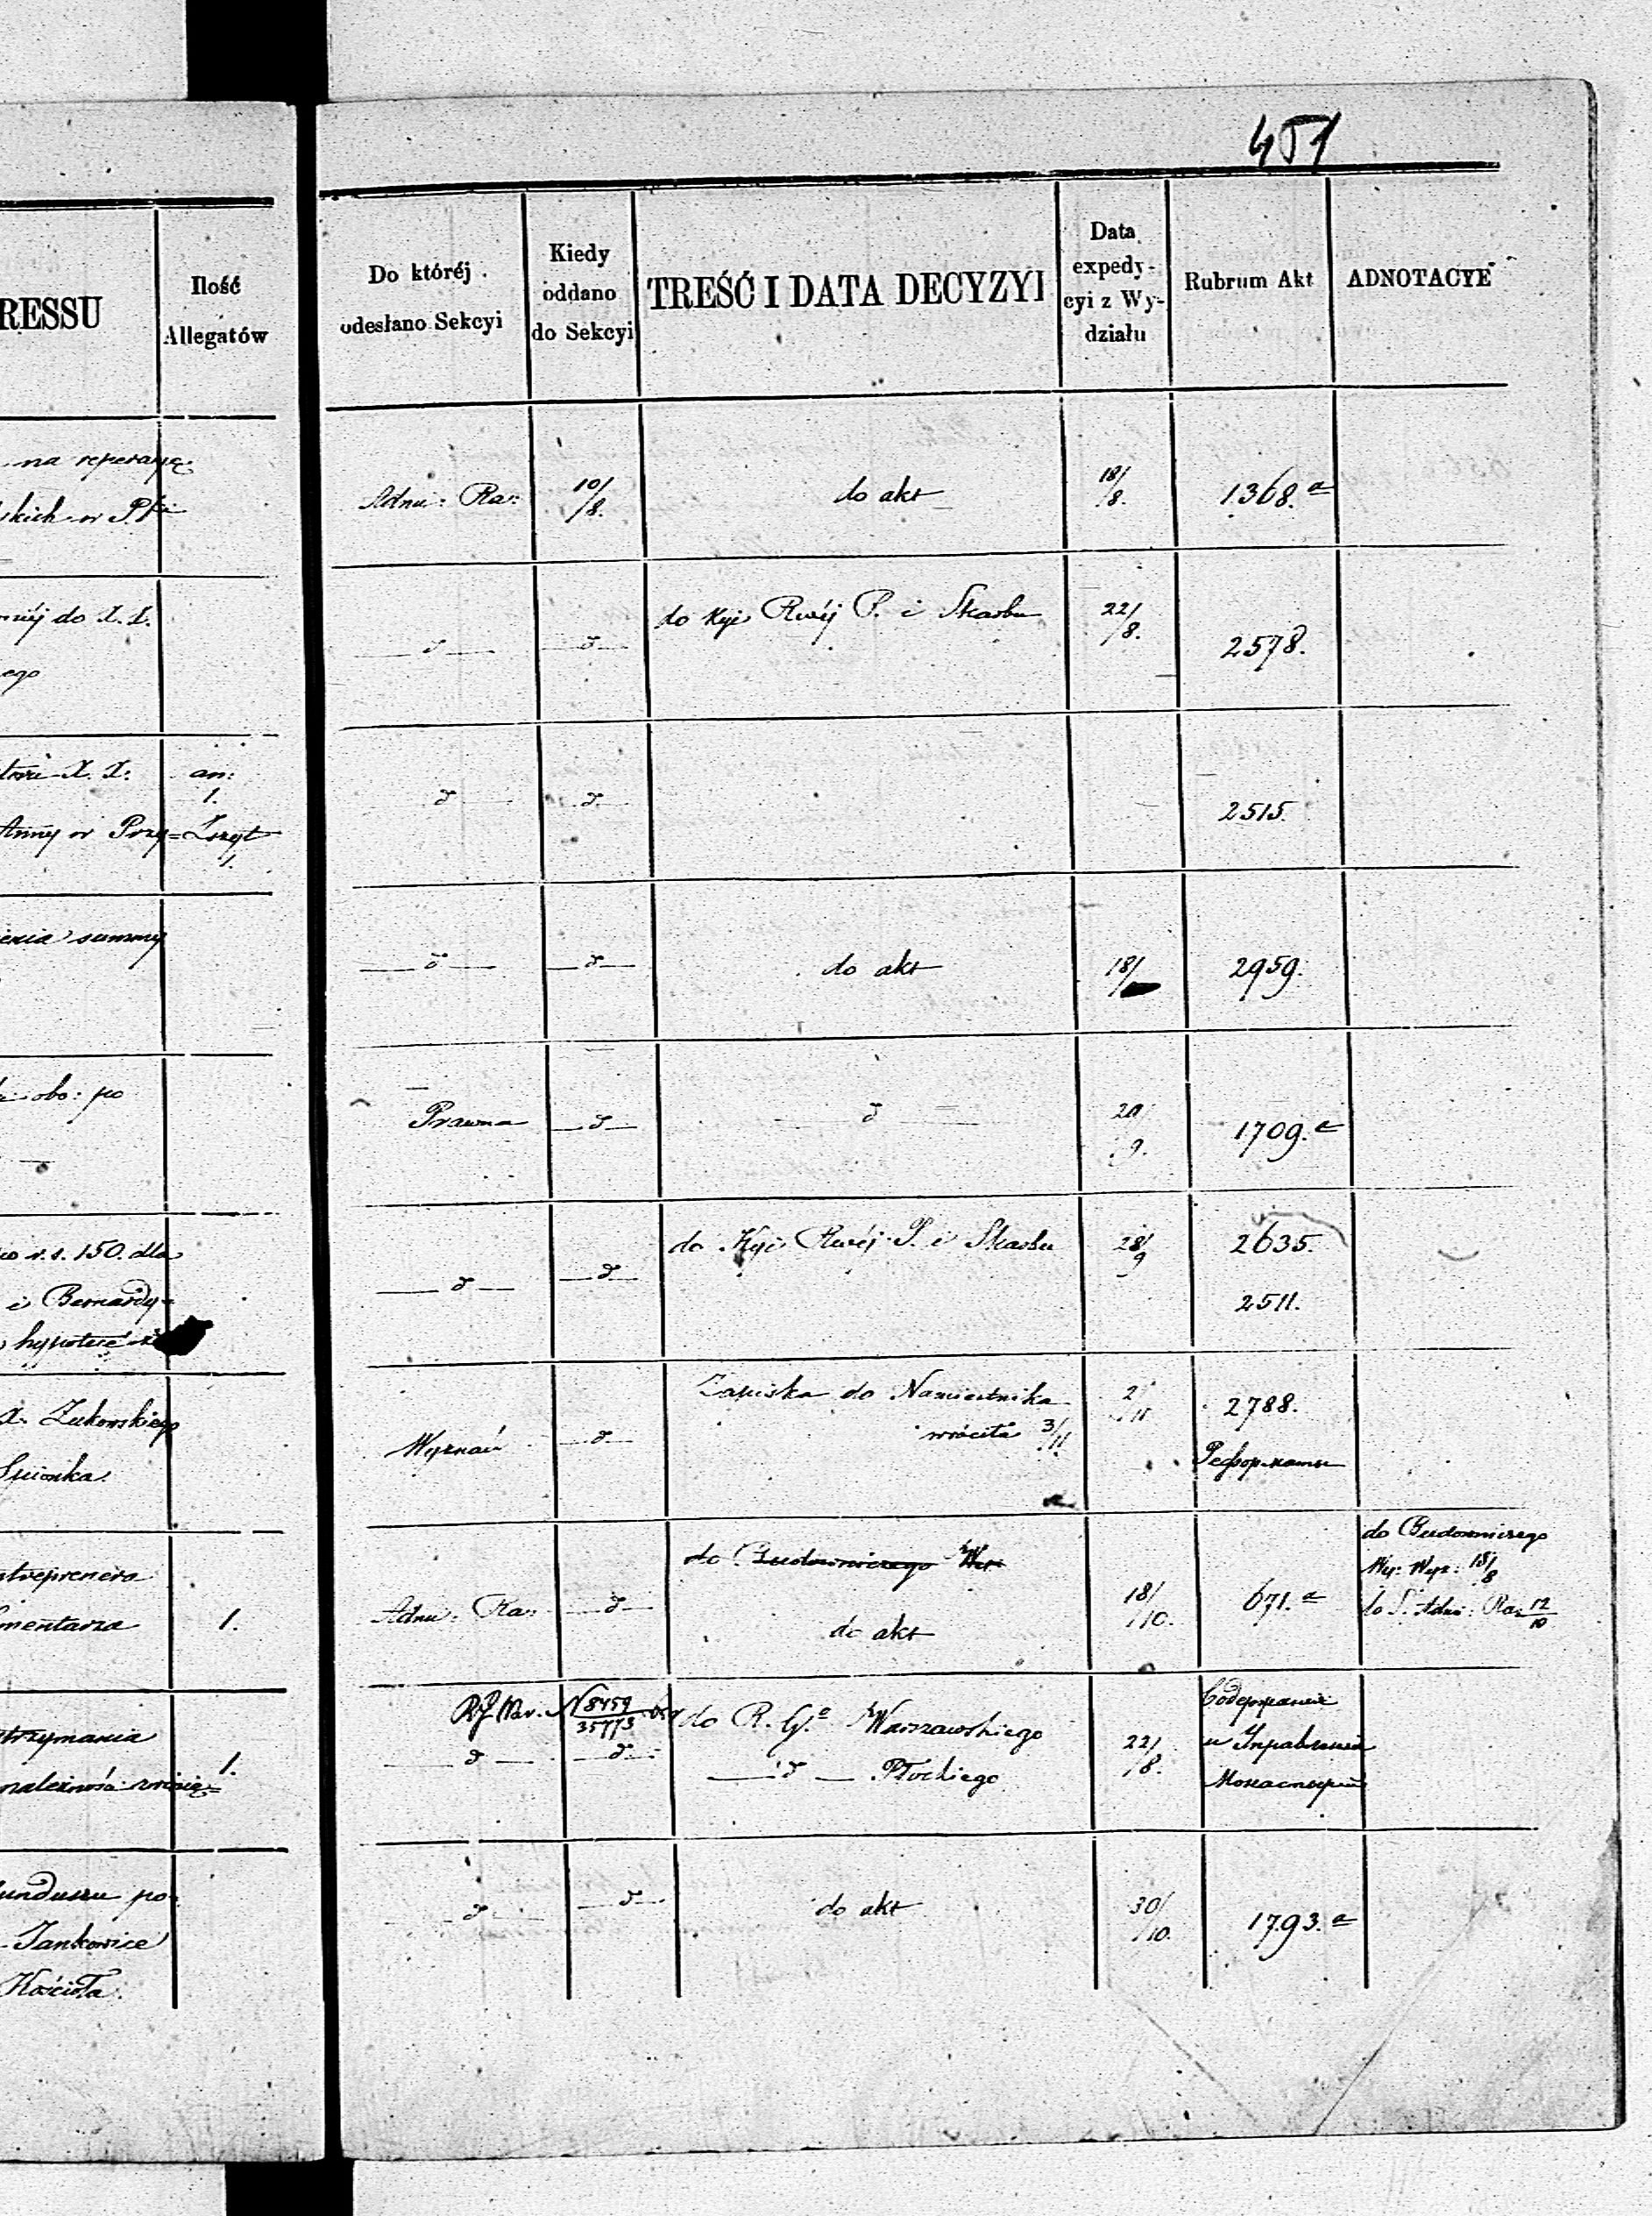 451
RESSU
Ilość
Allegatów
Do któréj
odesłano Sekcyi
Kiedy
oddano
do Sekcyi
TREŚĆ I DATA DECYZYI
Data
expedy-
cyi z Wy-
działu
Rubrum Akt
ADNOTACYE
na reperacyą
skich w
Adm: Ra:
10/8.
do akt
18/8.
1368.a
do X. X.
ego
d
d
do Kyi Rwéj P. i Skarbu
22/8.
2578.
X. X.
an:
1.
Anny w Przy=
Zszyt
1.
d
d
2515.
summy
d
d
do akt
18/
2959.
obo: po
Prawna
d
d
20
9.
1709.a
r. s. 150. dla
i Bernardy=
hypotece
d
d
do Kyi Rwéj P. i Skarbu
28/9
2635.
2511.
X. Żukowskiego
Wyznań
d
Zapiska do Namiestnika
wróciła 3/11.
2/11
2788.
Реформаты
entreprenera
cmentarza
1.
Adm: Ra:
d
do Budowniczego Wy:
do akt
18/10.
671.a
do Budowniczego
Wy: Wyz: 18/8
do S. Adm: Ra: 12/10
utrzymania
należność
1.
N 8459/35773
d
d
do R. G.o Warszawskiego
d Płockiego
22/8.
Содержание
и Управление
Монастырей
funduszu po
Jankowice
Kościoła.
d
d
do akt
30/10.
1793.a